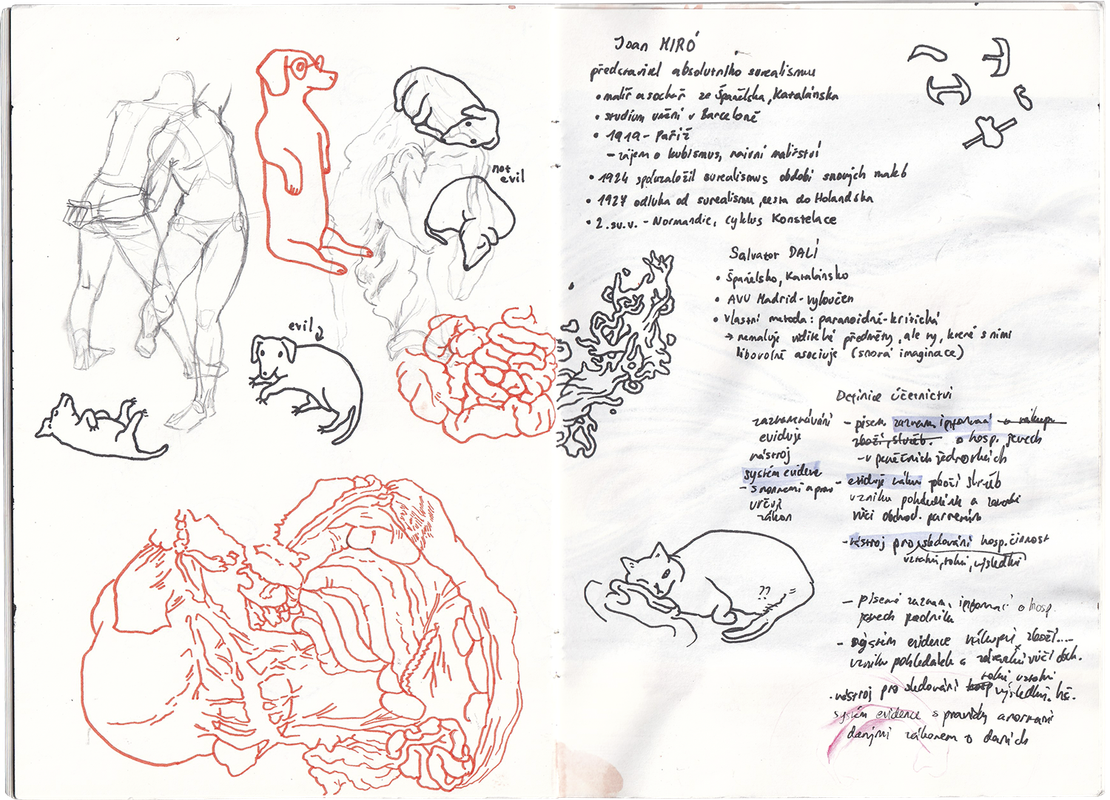 not
evil
evil
Joan MIRÓ
představitel absolutního surealismu
• malíř a sochař ze Španělska, Katalánska
• studium umění v Barceloně
• 1919 - Paříž
- zájem o kubismus, naivní malířství
• 1924 spoluzaložil surealismus období snových maleb
• 1927 odluka od surealismu, cesta do Holandska
• 2.sv.v. - Normandie, cyklus Konstelace
Salvator DALÍ
• Španělsko, Katalánsko
• AVU Madrid - vyloučen
• vlastní metoda: paranoidně-kritická
→ nemaluje viditelné předměty, ale ty, které s nimi
libovolně asociuje (snová imaginace)
Definice účetnictví
zaznamenávání
eviduje
nástroj
systém evidence
- s normami a prav
určují
zákon
- písem. zaznam. informací o nákupu
zboží, služeb. o hosp. jevech
- v peněžních jednotkách
- eviduje nákup zboží služeb
vzniku pohledávek a závazků
vůči obchod. partnerům
- nástroj pro sledování hosp. činnost
výsledků
- písemné zaznam. informací o hosp
jevech podniku
- systém evidence nákupů, zboží...
vzniku pohledávek a závazků vůči
• nástroj pro sledování výsledků
systém evidence s pravidly a normami
danými zákonem o daních
??